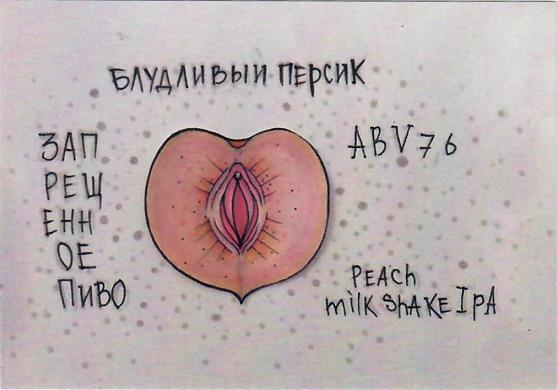 БЛУДЛИВЫЙ ПЕРСИК
ЗАП
РЕЩ
ЕНН
ОЕ
ПИВО
ABV 76
PEACh
milK ShAKE IPA